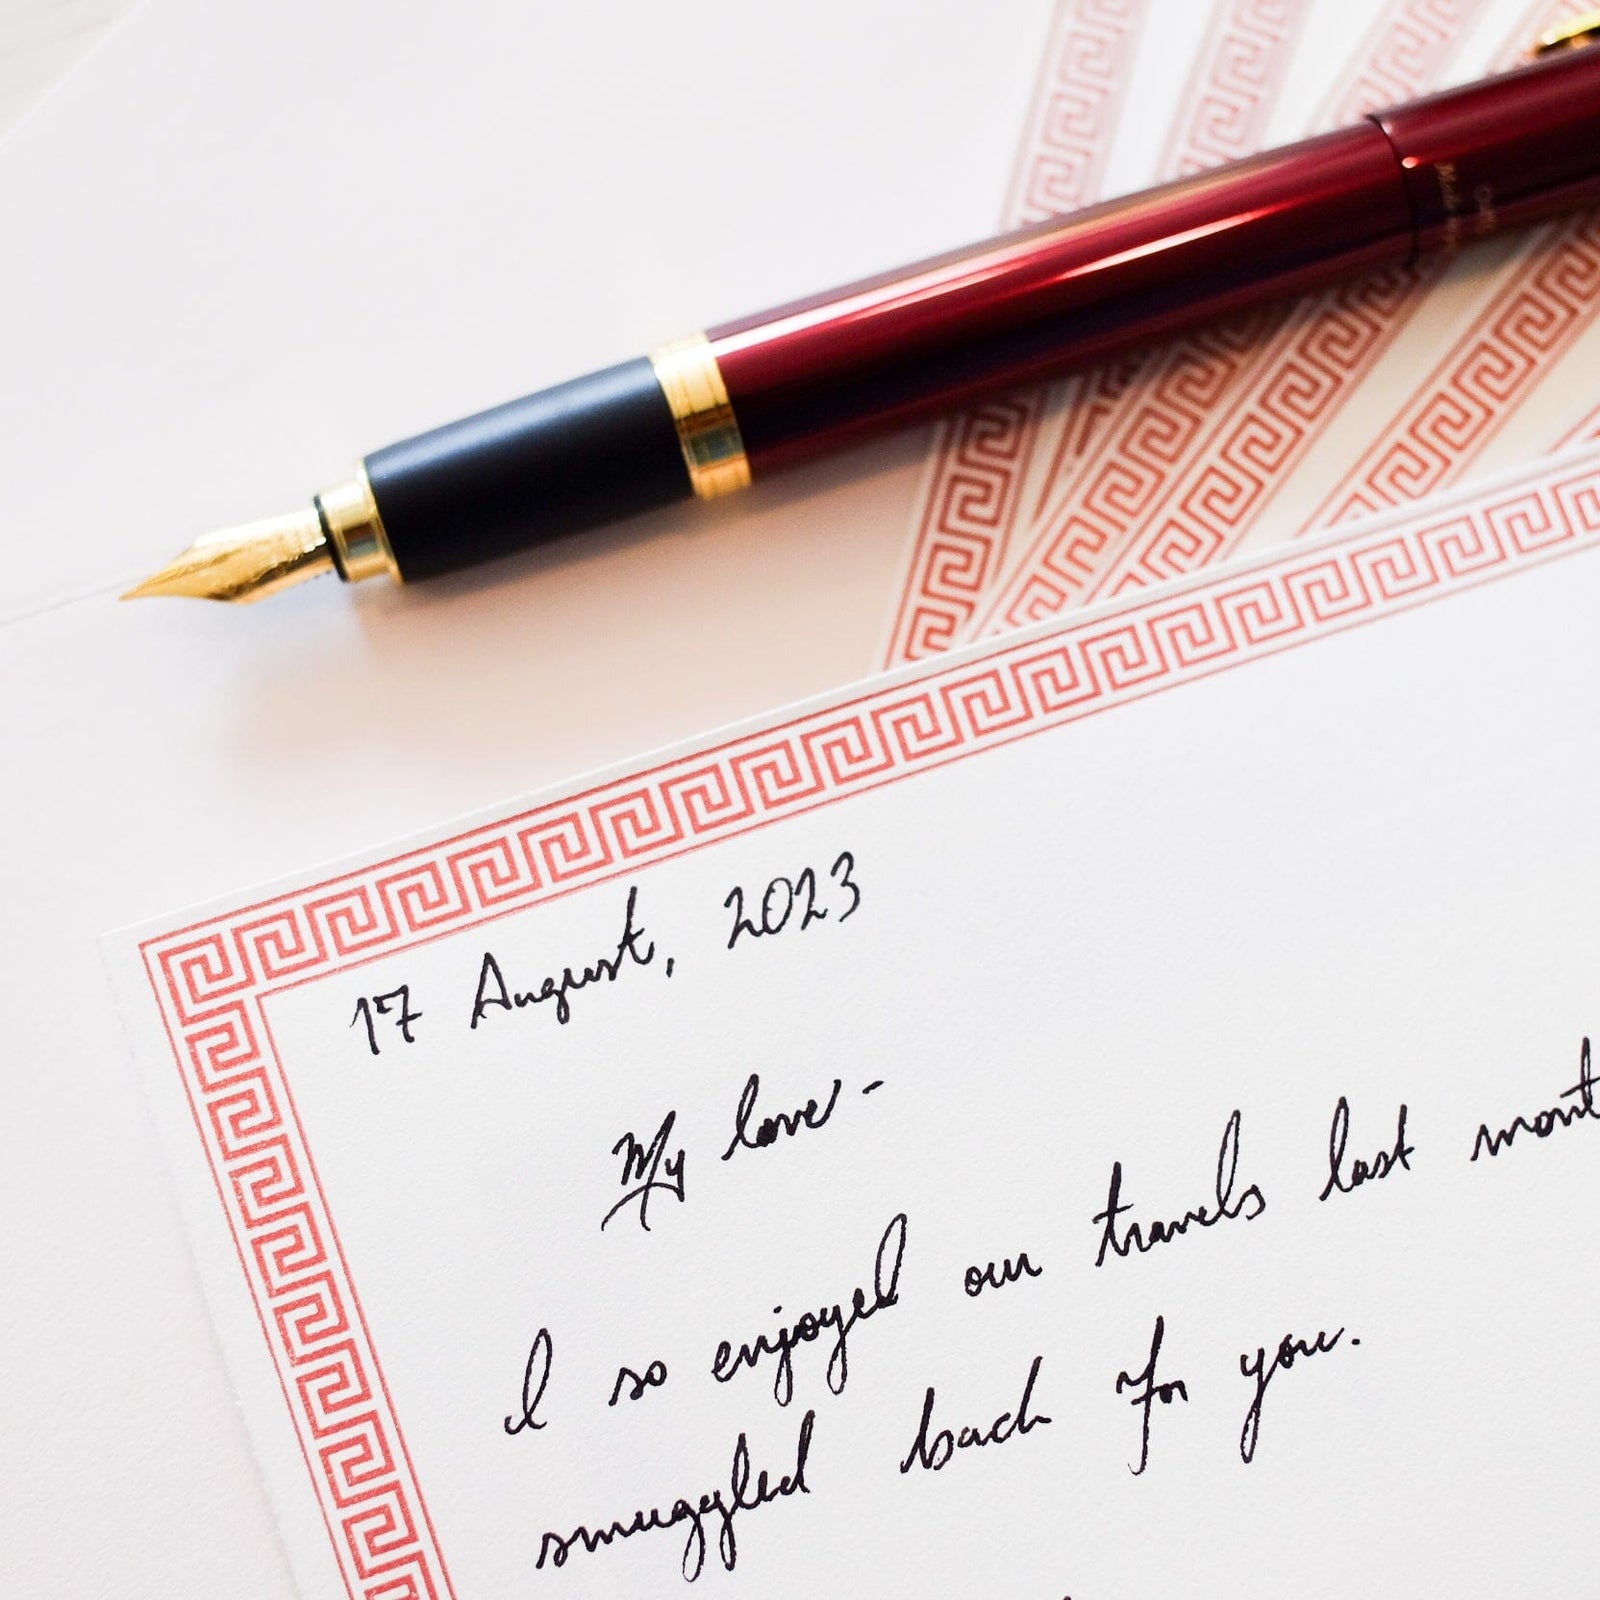 17 August, 2023
My love -
I so enjoyed our travels last mont
smuggled back for you.